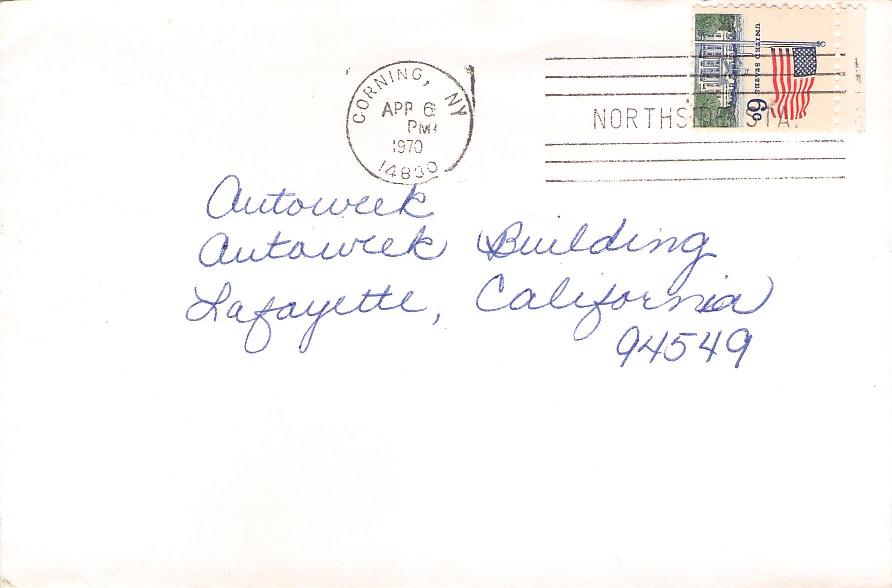 CORNING, NY
APR 6
PM
1970
14830
UNITED STATES
6¢
NORTHSIDE STA.
Autoweek
Autoweek Building
Lafayette, California
94549